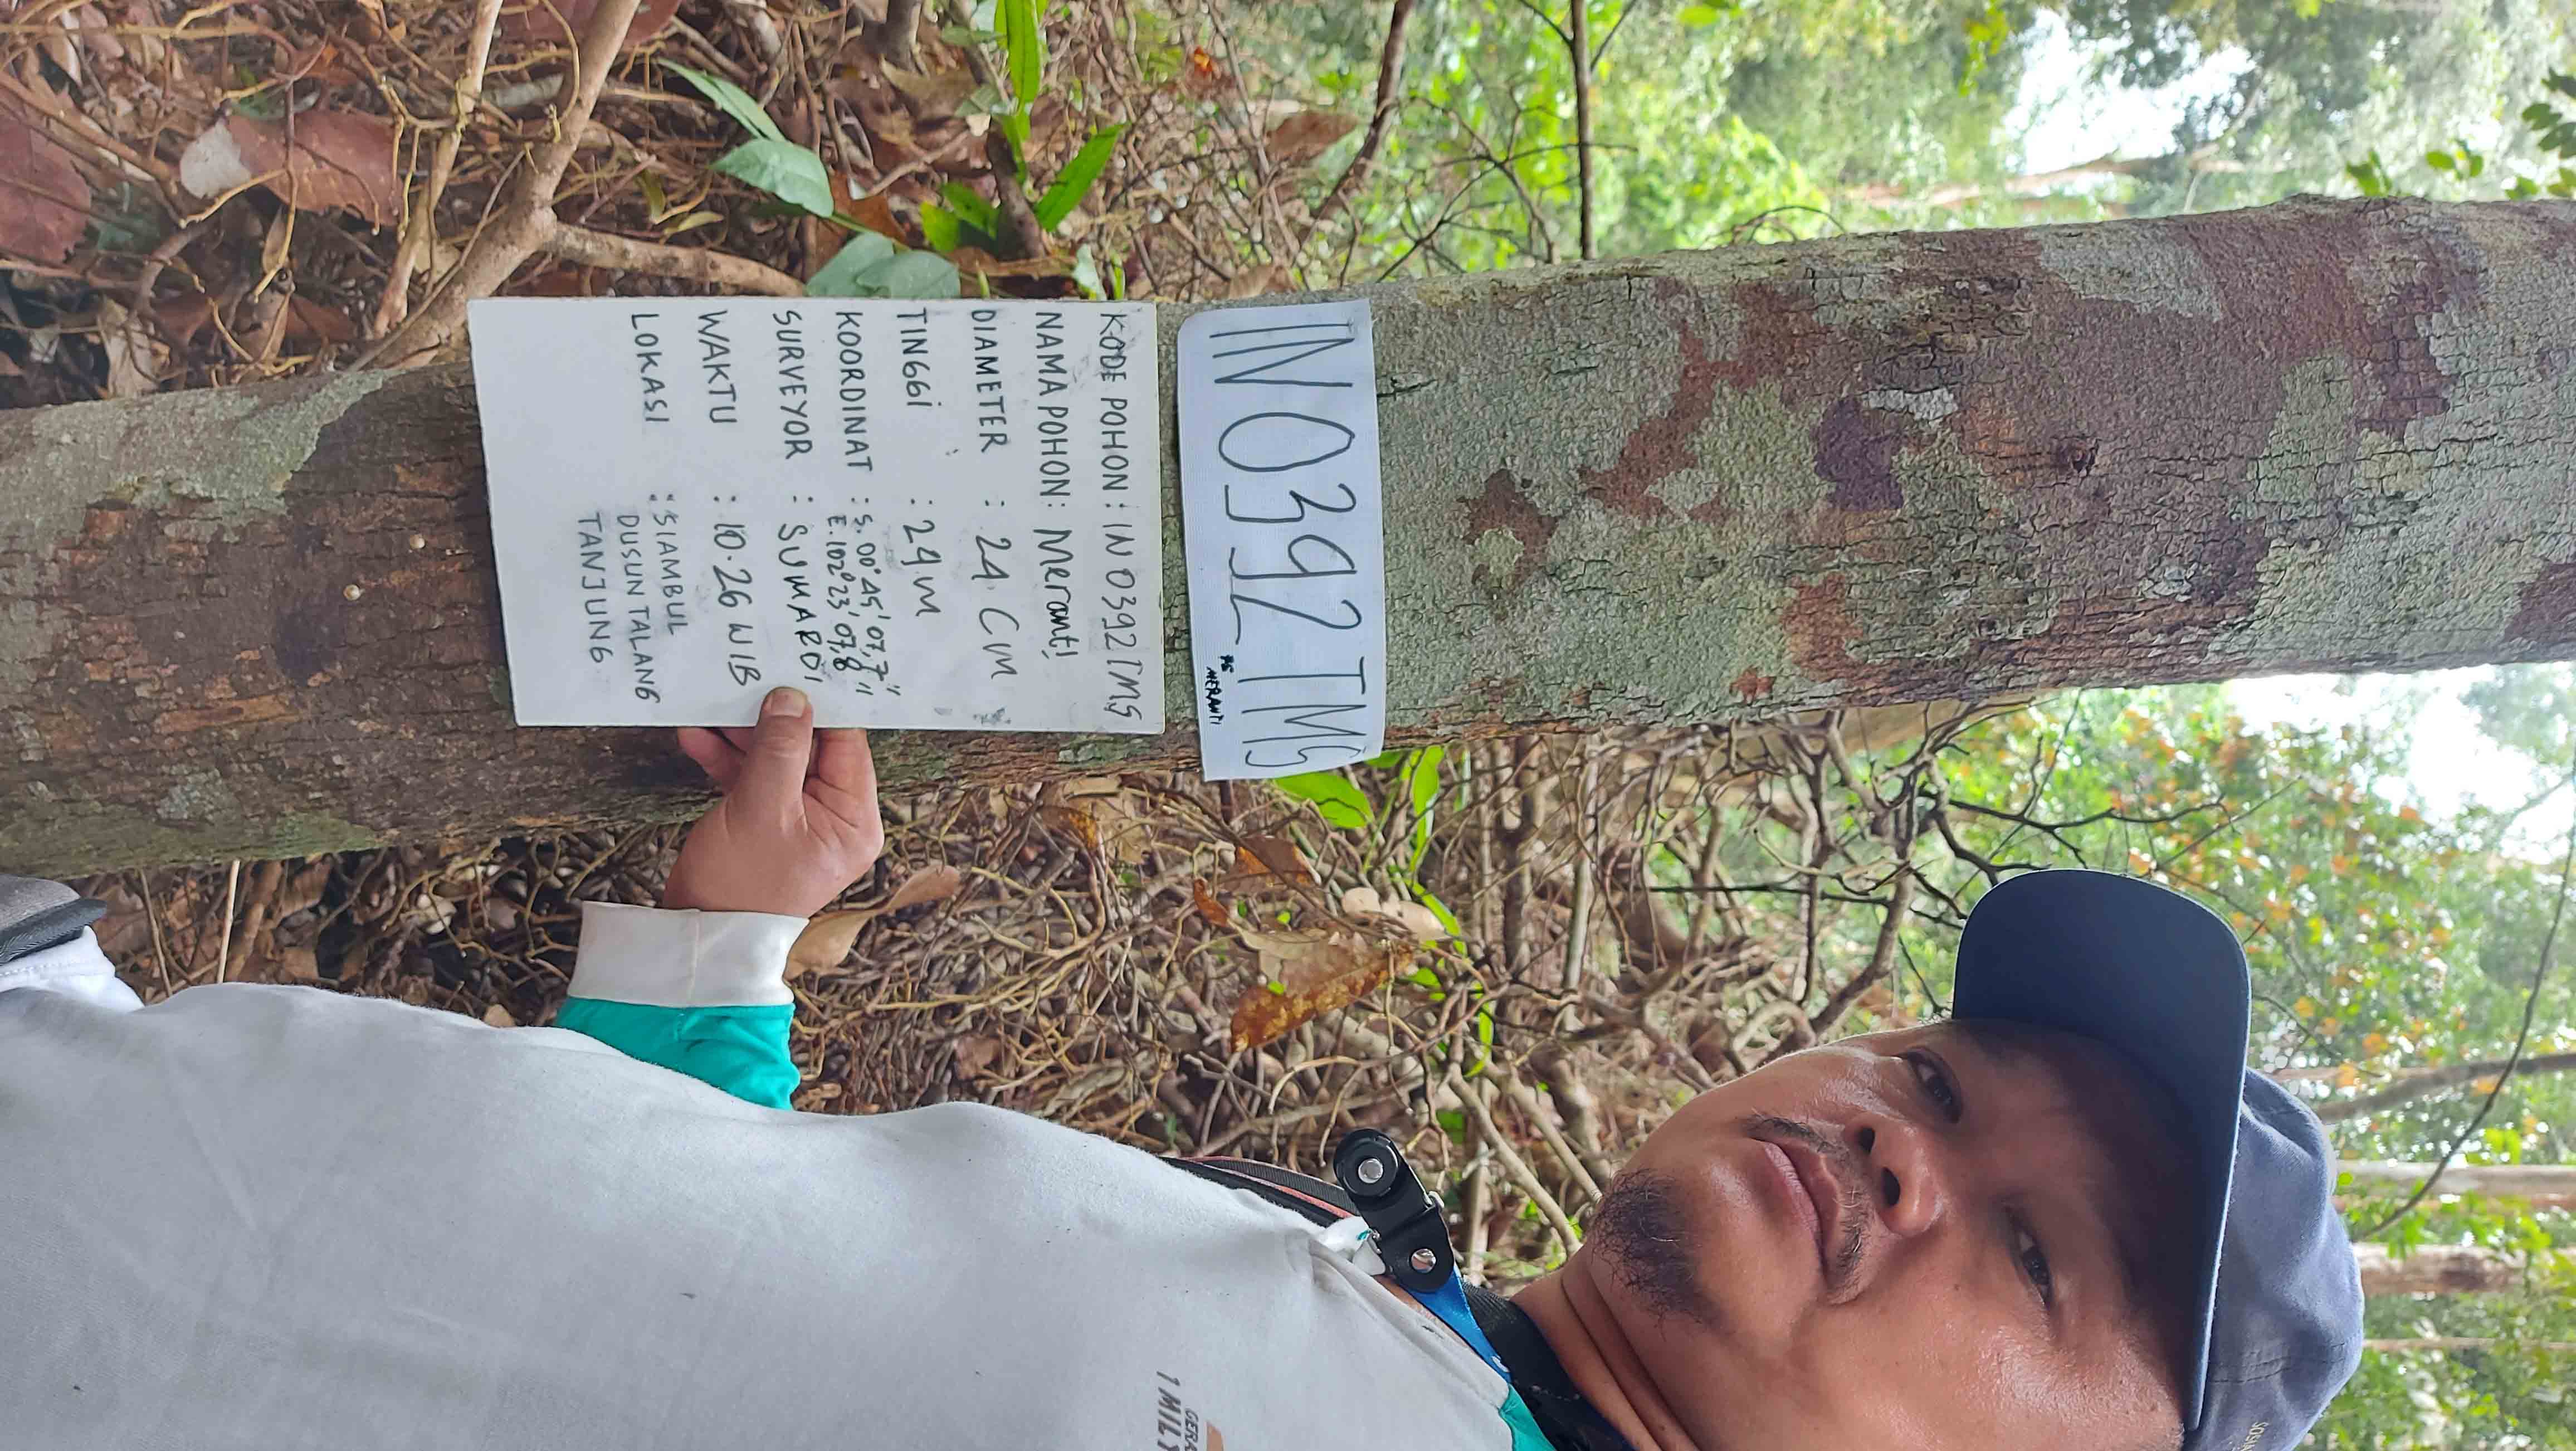 IN 0392 TMS
MERANTI
KODE POHON : IN 0392 TMS
NAMA POHON : Meranti
DIAMETER : 24 Cm
TINGGI : 24 m
KOORDINAT : S. 00° 45' 07,7"
E. 102° 23' 07,8"
SURVEYOR : SUMARDI
WAKTU : 10.26 WIB
LOKASI : SIAMBUL
DUSUN TALANG
TANJUNG